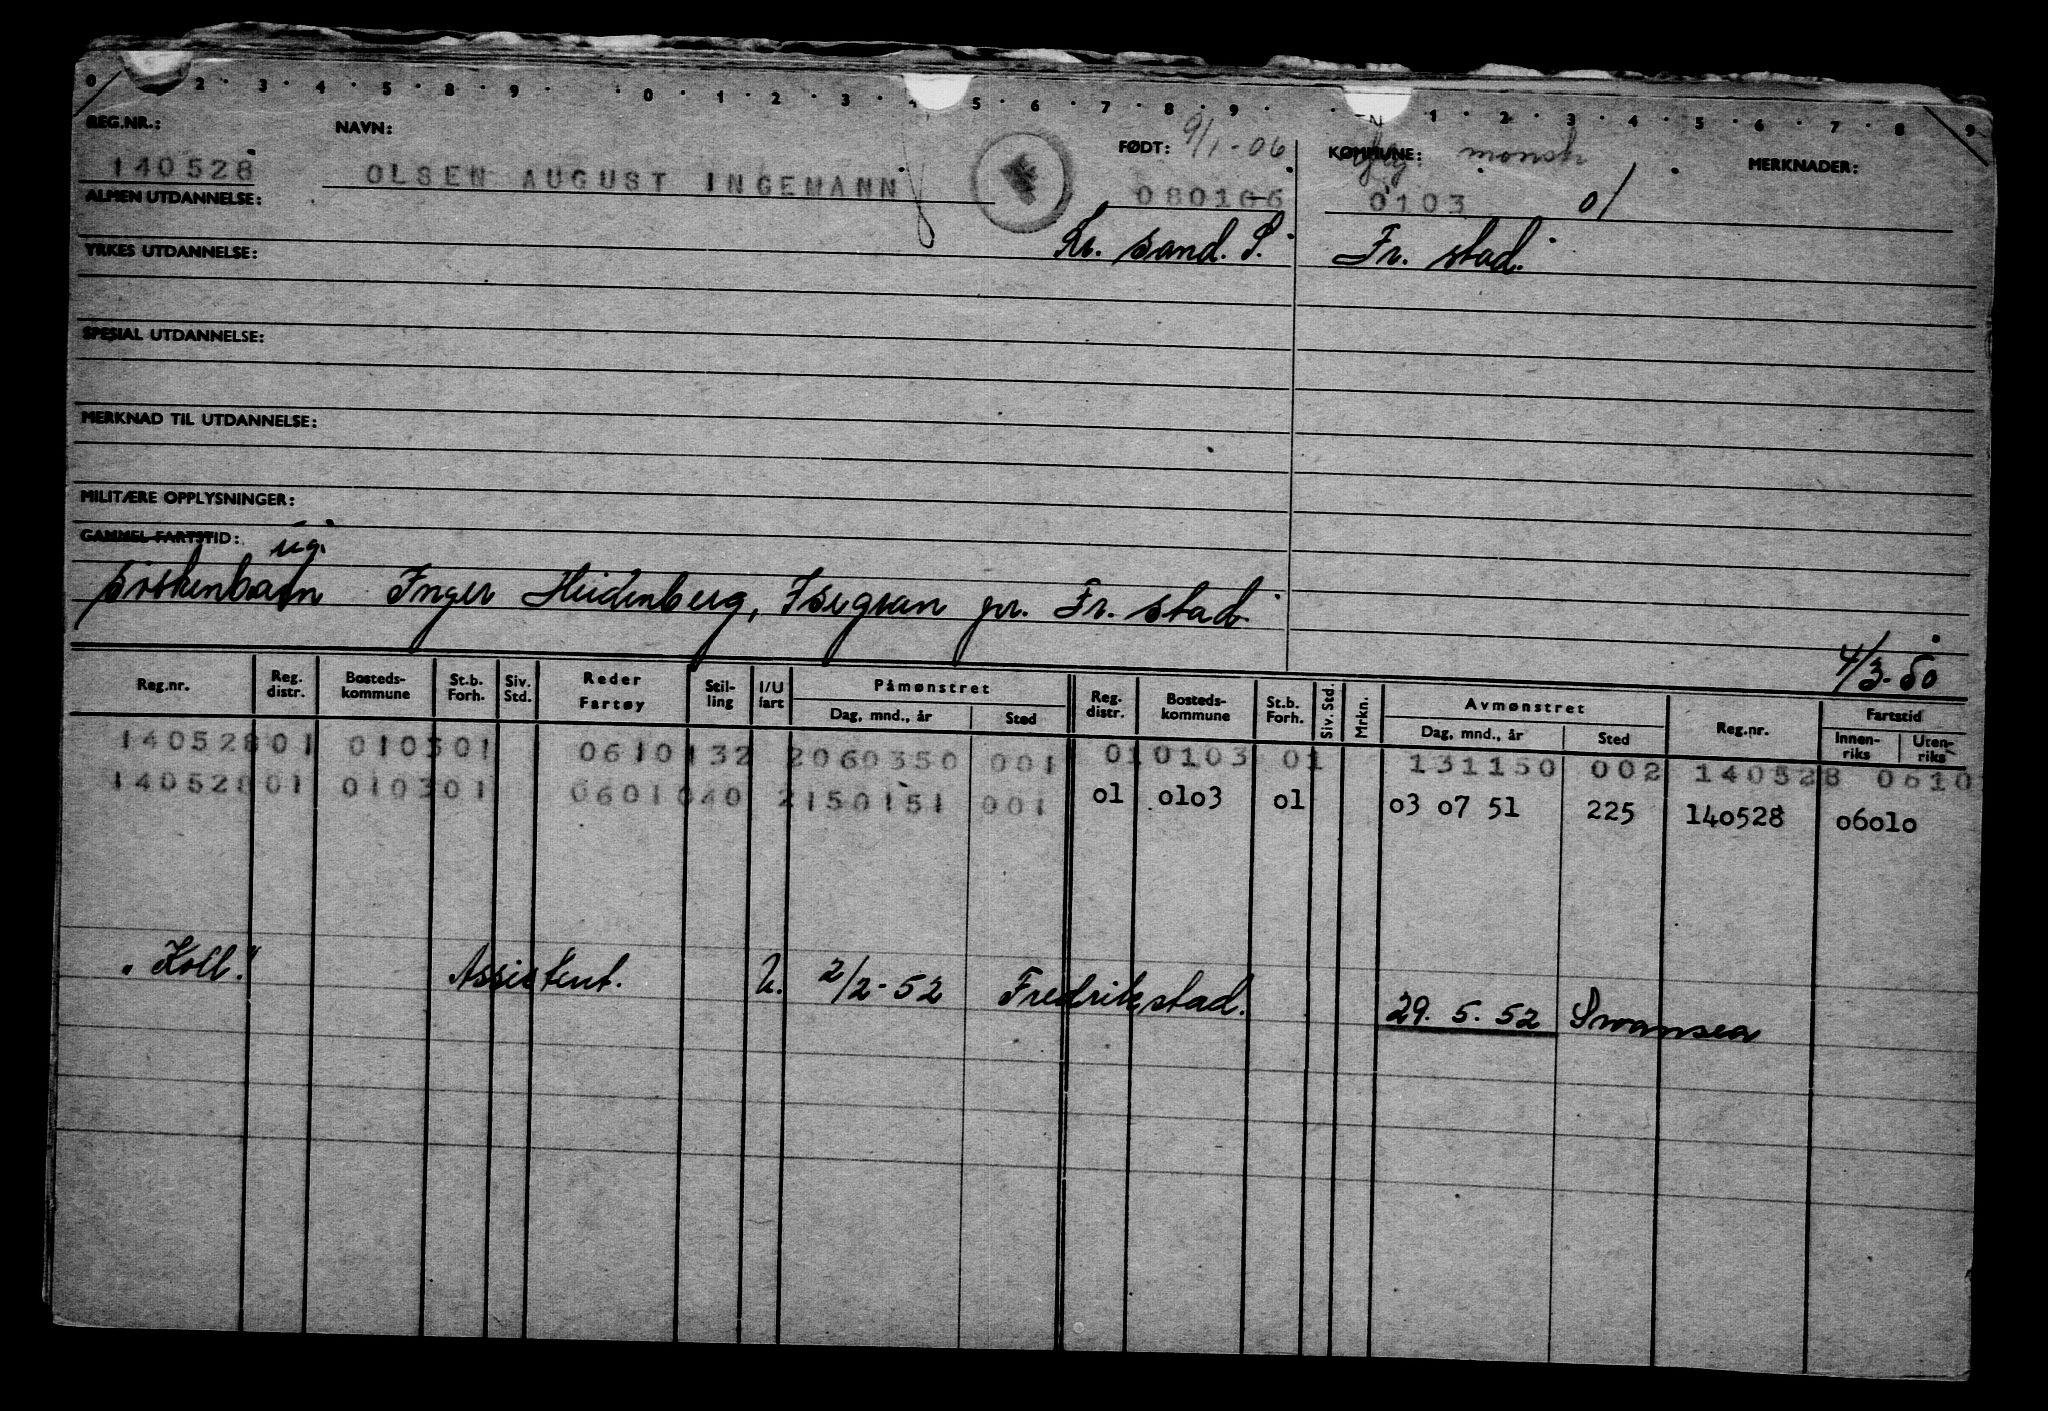 0 2 3 4 5 8 9 0 1 2 3 4 5 6 7 8 9 1 2 3 4 5 6 7 8 9
REG.NR.: NAVN: FØDT: 9/1-06 KOMMUNE: mønstr MERKNADER:
140528 OLSEN AUGUST INGEMANN 080106 0103 01
ALMEN UTDANNELSE:
Kr. sand. S. Fr. stad.
YRKES UTDANNELSE:
SPESIAL UTDANNELSE:
MERKNAD TIL UTDANNELSE:
MILITÆRE OPPLYSNINGER:
GAMMEL FARTSTID: ug.
Søskenbarn Inger Heidenberg, Isegran pr. Fr. stad.
4/3-50
Reg.nr. Reg. distr. Bosteds-kommune St.b. Forh. Siv. Std. Reder Fartøy Stil-ling I/U fart Påmønstret Dag, mnd., år Sted Reg. distr. Bosteds-kommune St.b. Forh. Siv. Std. Mrkn. Avmønstret Dag, mnd., år Sted Reg.nr. Fartstid Innen-riks Uten-riks
140528 01 0103 01 0610 132 2 060350 001 01 0103 01 131150 002 140528 0610
140528 01 0103 01 0601 040 2 150151 001 01 0103 01 03 07 51 225 140528 06010
"Koll." Assistent. U. 2/2-52 Fredrikstad. 29. 5. 52 Swansea